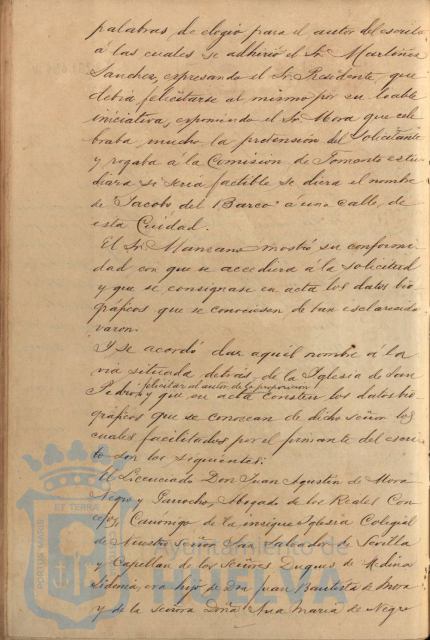 palabras de elogio para el autor del escrito
á las cuales se adhirió el Sr. Martinez
Sanchez, expresando el Sr. Presidente, que
debia felicitarse al mismo por su loable
iniciativa, exponiendo el Sr. Mora que cele
braba mucho la pretensión del solicitante
y rogaba á la Comision de Fomento estu
diara si seria factible se diera el nombre
de Jacobo del Barco á una calle de
esta Ciudad.
El Sr. Manzano mostró su conformi
dad con que se accediera á la solicitud
y que se consignase en acta los datos bio
gráficos que se conociesen de tan esclarecido
varon.
Y se acordó dar aquél nombre á la
via situada detrás de la Iglesia de San
felicitar al autor de la proposicion
Pedro, y que en acta consten los datos bio
gráficos que se conozcan de dicho señor los
cuales facilitados por el firmante del escri
to son los siguientes:
El Licenciado Don Juan Agustin de Mora
Negro y Garrocho, Abogado de los Reales Con
cejos, Canonigo de la insigne Iglesia Colegial
de Nuestro Señor San Salvador de Sevilla
y Capellan de los Señores Duques de Medina
Sidonia, era hijo de Don Juan Bautista de Mora
y de la Señora Doña Ana Maria de Negro
PORTUS MARIS ET TERRAE
Ayuntamiento de
HUELVA